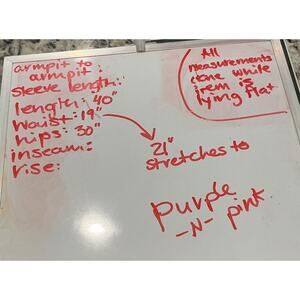 armpit to
armpit:
sleeve length:
length: 40"
waist: 19"
hips: 30"
inseam:
rise:
All
measurements
done while
item is
lying flat
21"
stretches to
purple
-N- pink